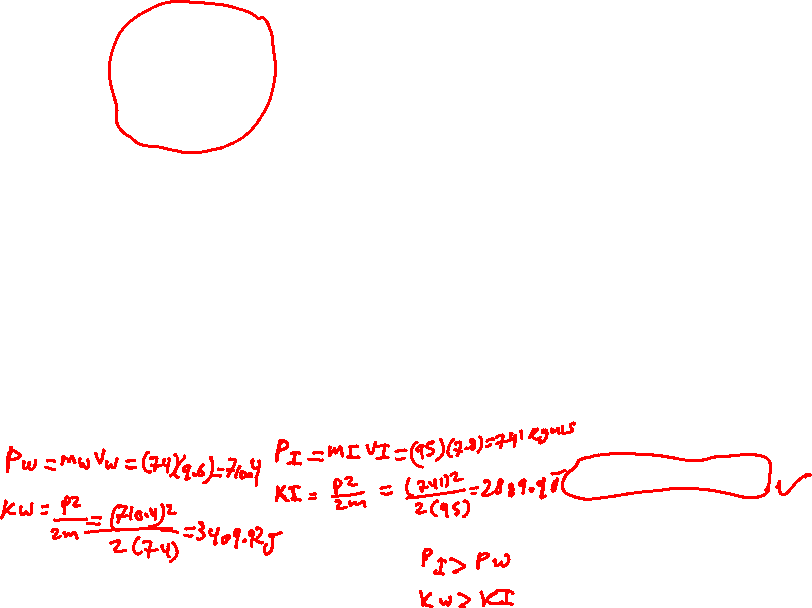 Pw = mw vw = (74)(9.6) = 710.4
Kw = P²/2m = (710.4)²/2(74) = 3409.92J
PI = mI vI = (95)(7.8) = 741 kgm/s
KI = P²/2m = (741)²/2(95) = 2889.9J
PI > Pw
Kw > KI